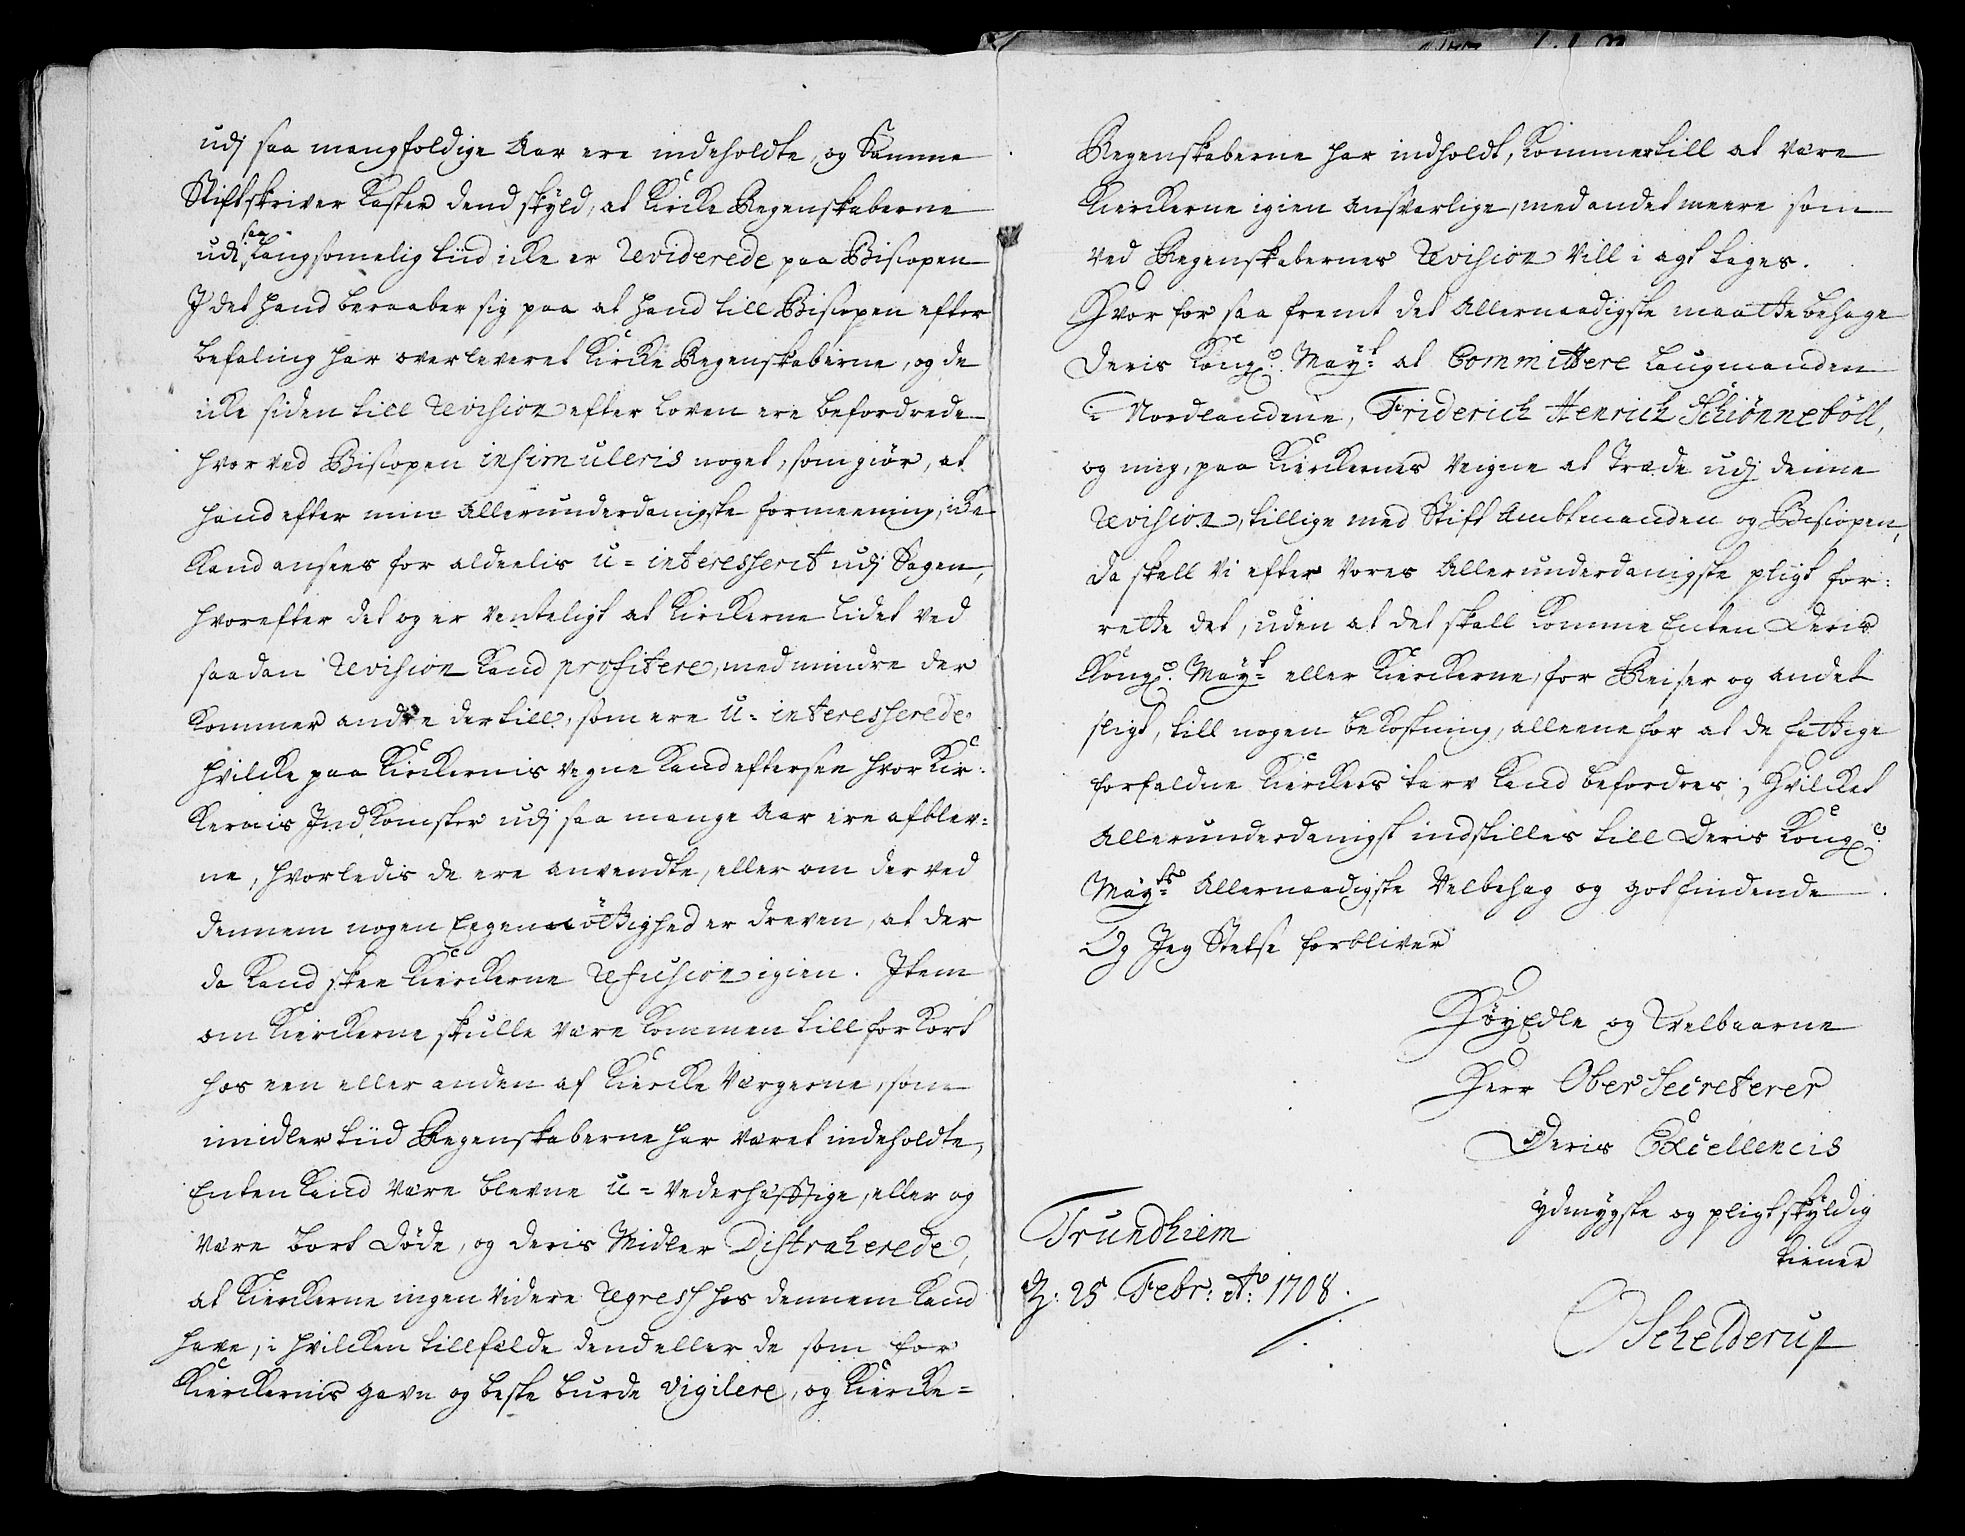 udj saa mangfoldige Aar ere indeholdte, og Samme
Stiftskriver kaster dend skyld, at Kircke Regenskaberne
udj saa langsomelig tiid icke er Reviderede paa Biscopen
J det hand beraaber sig paa at hand till Biscopen efter
befaling har overleveret Kircke Regenskaberne, og de
icke siden till Revision efter loven ere befordrede
hvor ved Biscopen insimuleris noget, som giør, at
hand efter min Allerunderdanigste formeening, icke
kand ansees for aldeelis u=interesserit udj Sagen,
hvorefter det og er venteligt at Kirckerne lidet ved
saadan Revision kand profitere, med mindre der
kommer andre dertill, som ere u=interesserede,
hvilcke paa Kirckernis vegne kand eftersee hvor Kir=
kernis Jndkomster udj saa mange Aar ere afblev=
ne, hvorledis de ere anvendte, eller om der ved
dennem nogen Eegennöttighed er dreven, at der
da kand skee Kierckerne Refusion igien. Jtem
om Kierckerne skulle være kommen till forkort
hos een eller anden af Kiercke Værgerne, som
imidlertiid Regenskaberne har været indeholdte,
Enten kand være blevne u=vederhefftige, eller og
være bort døde, og deris Midler Distraherede,
at Kierckerne ingen videre Regress hos dennem kand
have, i hvilcken tillfælde dend eller de som for
Kierckernis gavn og beste burde vigilere, og Kiercke=
Regenskaberne har indholdt, kommer till at være
Kierckerne igien ansvarlige, med andet meere som
ved Regenskabernes Revision vill i agt tages.
Hvor for saa fremt det Allernaadigste maatte behage
Deris Kongl. Mayt: at Committere Laugmanden
i Nordlandene, Friderich Henrich Schiønneböll,
og mig, paa Kierckernes veigne at Træde udj denne
Revision, tillige med Stift Ambtmanden og Biscopen,
da skall vi efter vores Allerunderdanigste pligt for=
rette det, uden at det skall komme Enten Deris
Kongl. Mayt: eller Kierckerne, for Reiser og andet
sligt, till nogen bekostning, alleene for at de fattige
forfaldne Kierckers tarv kand befordres; Hvilcket
Allerunderdanigst indstilles till Deris Kongl.
Mayts: Allernaadigste Velbehag og gotfindende.
Og Jeg Stetse forbliver
HøyEdle og Velbaarne
Herr Ober Secreterer
Deris Excellencis
ydmygste og pligtskyldig
tiener
Trundhiem
D: 25 Febr: Ao: 1708.
Schelderup